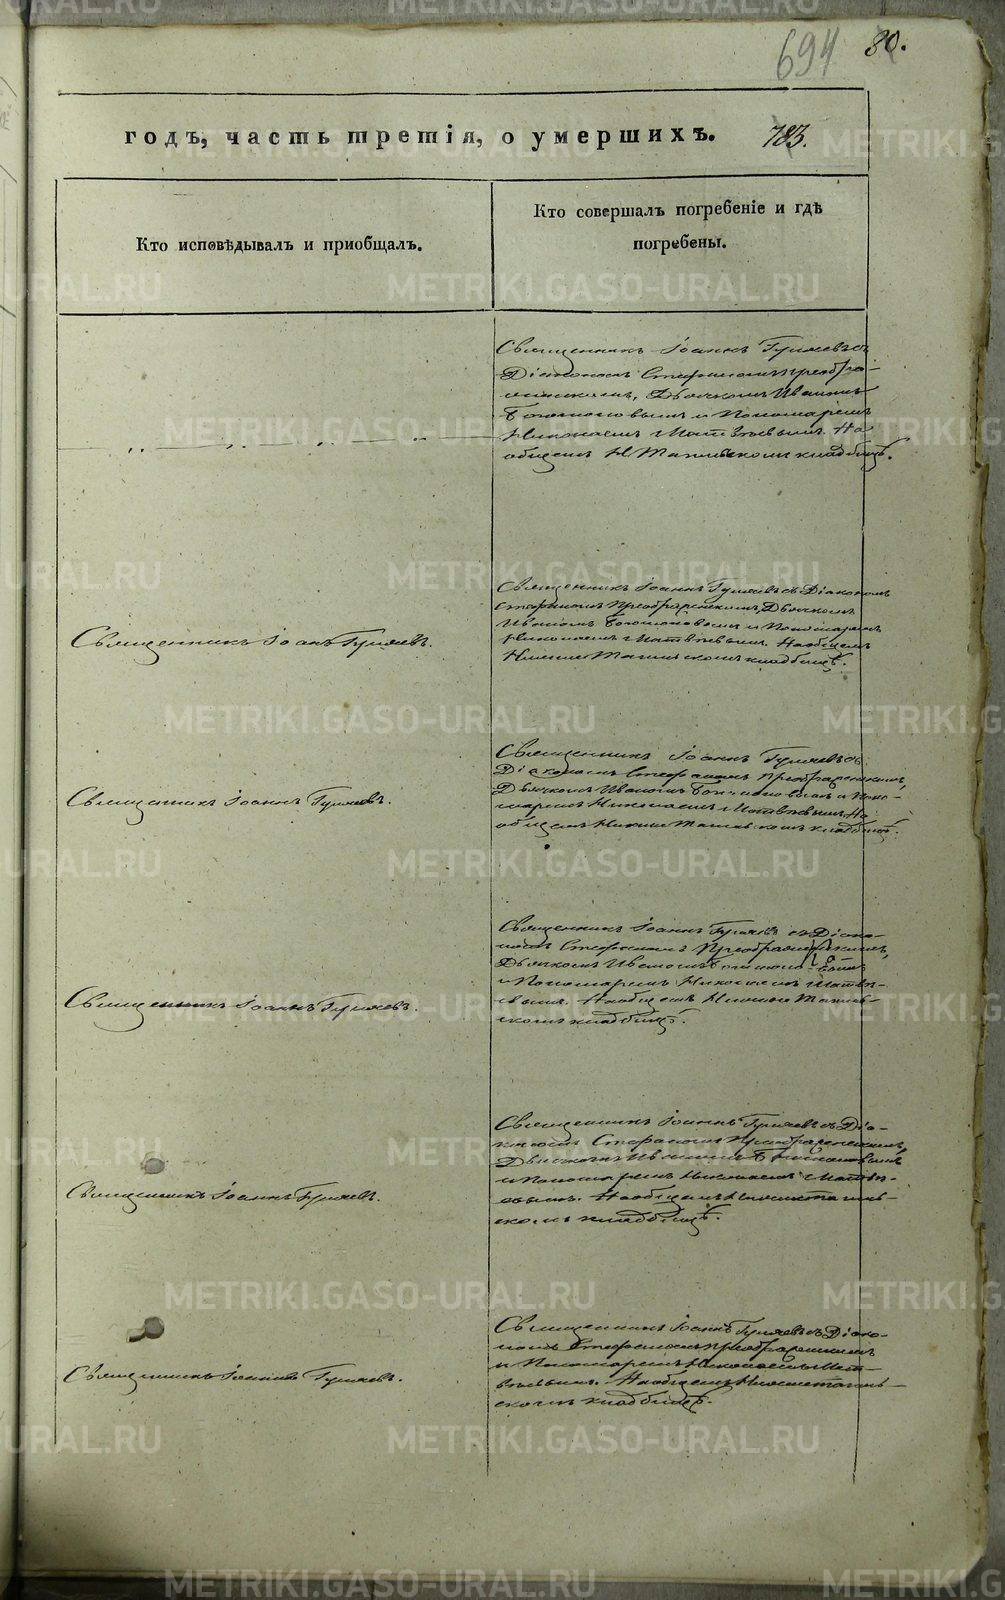 694 80.
годъ, часть третія, о умершихъ. 783.
Кто исповѣдывалъ и приобщалъ.
Кто совершалъ погребеніе и гдѣ
погребены.
Священникъ Іоаннъ Гуляевъ съ
Діакономъ Стефаномъ Преобра-
Дьячкомъ Иваномъ
и Пономаремъ
Николаемъ Матвѣевымъ. На
общемъ Н Тагильскомъ кладбищѣ.
Священникъ Іоаннъ Гуляевъ.
Священникъ Іоаннъ Гуляевъ съ Діакономъ
Стефаномъ Преображенскимъ, Дьячкомъ
Иваномъ и Пономаремъ
Николаемъ Матвѣевымъ. На общемъ
Нижне Тагильскомъ кладбищѣ.
Священникъ Іоаннъ Гуляевъ.
Священникъ Іоаннъ Гуляевъ съ
Діакономъ Стефаномъ Преображенскимъ,
Дьячкомъ Иваномъ и Поно-
маремъ Николаемъ Матвѣевымъ. На
общемъ Нижне Тагильскомъ кладбищѣ.
Священникъ Іоаннъ Гуляевъ.
Священникъ Іоаннъ Гуляевъ съ Діако-
номъ Стефаномъ Преображенскимъ,
Дьячкомъ Иваномъ
и Пономаремъ Николаемъ Матвѣ-
евымъ. На общемъ Нижне Тагиль-
скомъ кладбищѣ.
Священникъ Іоаннъ Гуляевъ.
Священникъ Іоаннъ Гуляевъ съ Діа-
кономъ Стефаномъ Преображенскимъ,
Дьячкомъ Иваномъ
и Пономаремъ Николаемъ Матвѣ-
евымъ. На общемъ Нижнетагиль-
скомъ кладбищѣ.
Священникъ Іоаннъ Гуляевъ.
Священникъ Іоаннъ Гуляевъ съ Діако-
номъ Стефаномъ Преображенскимъ
и Пономаремъ Николаемъ Мат-
вѣевымъ. На общемъ Нижнетагиль-
скомъ кладбищѣ.
METRIKI.GASO-URAL.RU